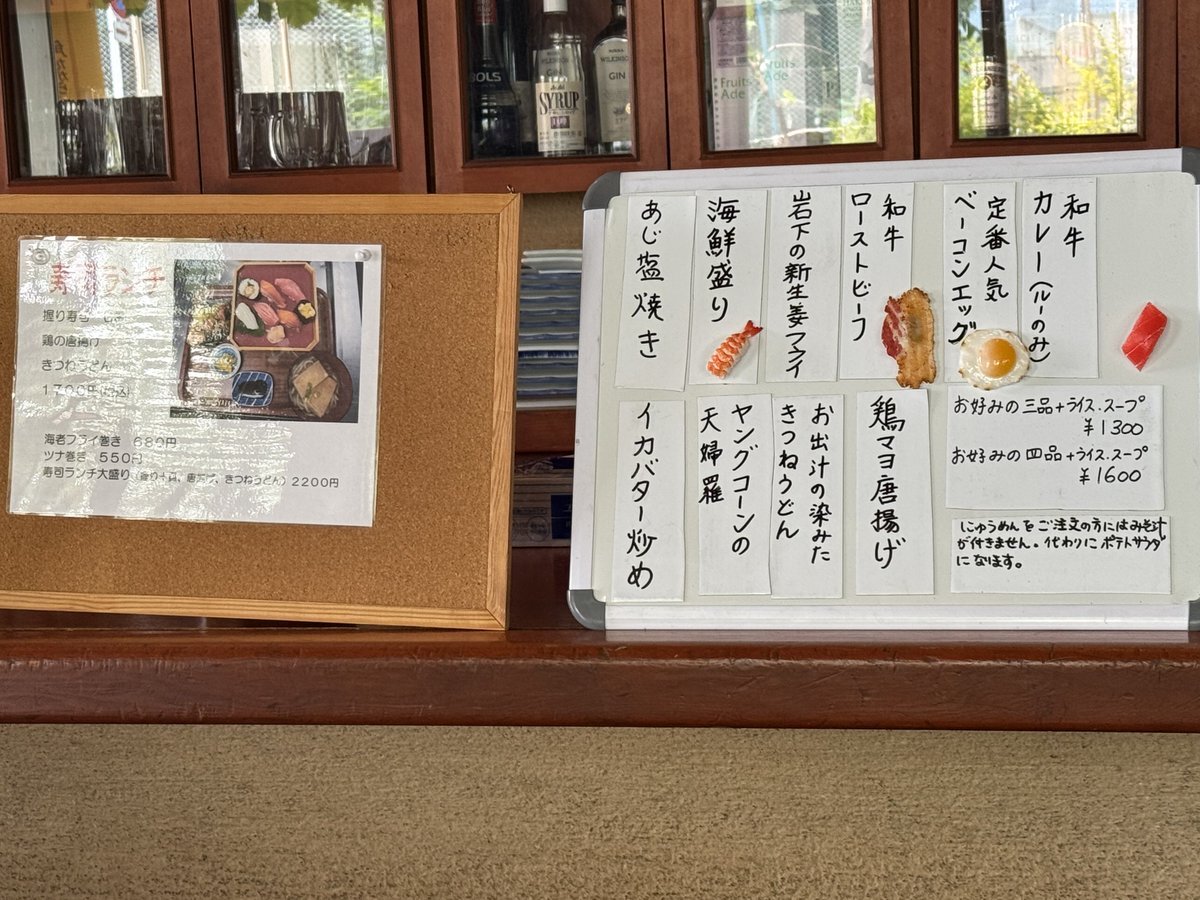 寿司ランチ
握り寿司
鶏の唐揚げ
きつねうどん
1700円(税込)
海老フライ巻き 680円
ツナ巻き 550円
寿司ランチ大盛り 2200円
和牛
カレー(ルーのみ)
定番人気
ベーコンエッグ
和牛
ローストビーフ
岩下の新生姜フライ
海鮮盛り
あじ塩焼き
お好みの三品+ライス.スープ
¥1300
お好みの四品+ライス.スープ
¥1600
にゅうめんをご注文の方にはみそ汁
が付きません。代わりにポテトサラダ
になります。
鶏マヨ唐揚げ
お出汁の染みた
きつねうどん
ヤングコーンの
天婦羅
イカバター炒め
BOLS
WILKINSON
GIN
Asahi
SYRUP
WILKINSON
GIN
Fruits
Ade
Fruits
Ade